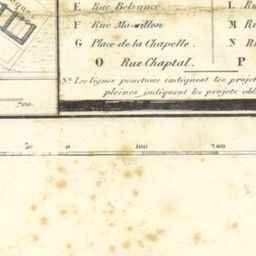 E Rue Belzunce L Ru
F Rue Massillon M R
G Place de la Chapelle. N R
O Rue Chaptal. P
Nª Les lignes ponctuées indiquent les projet
pleines indiquent les projets obl
50 0 100 200